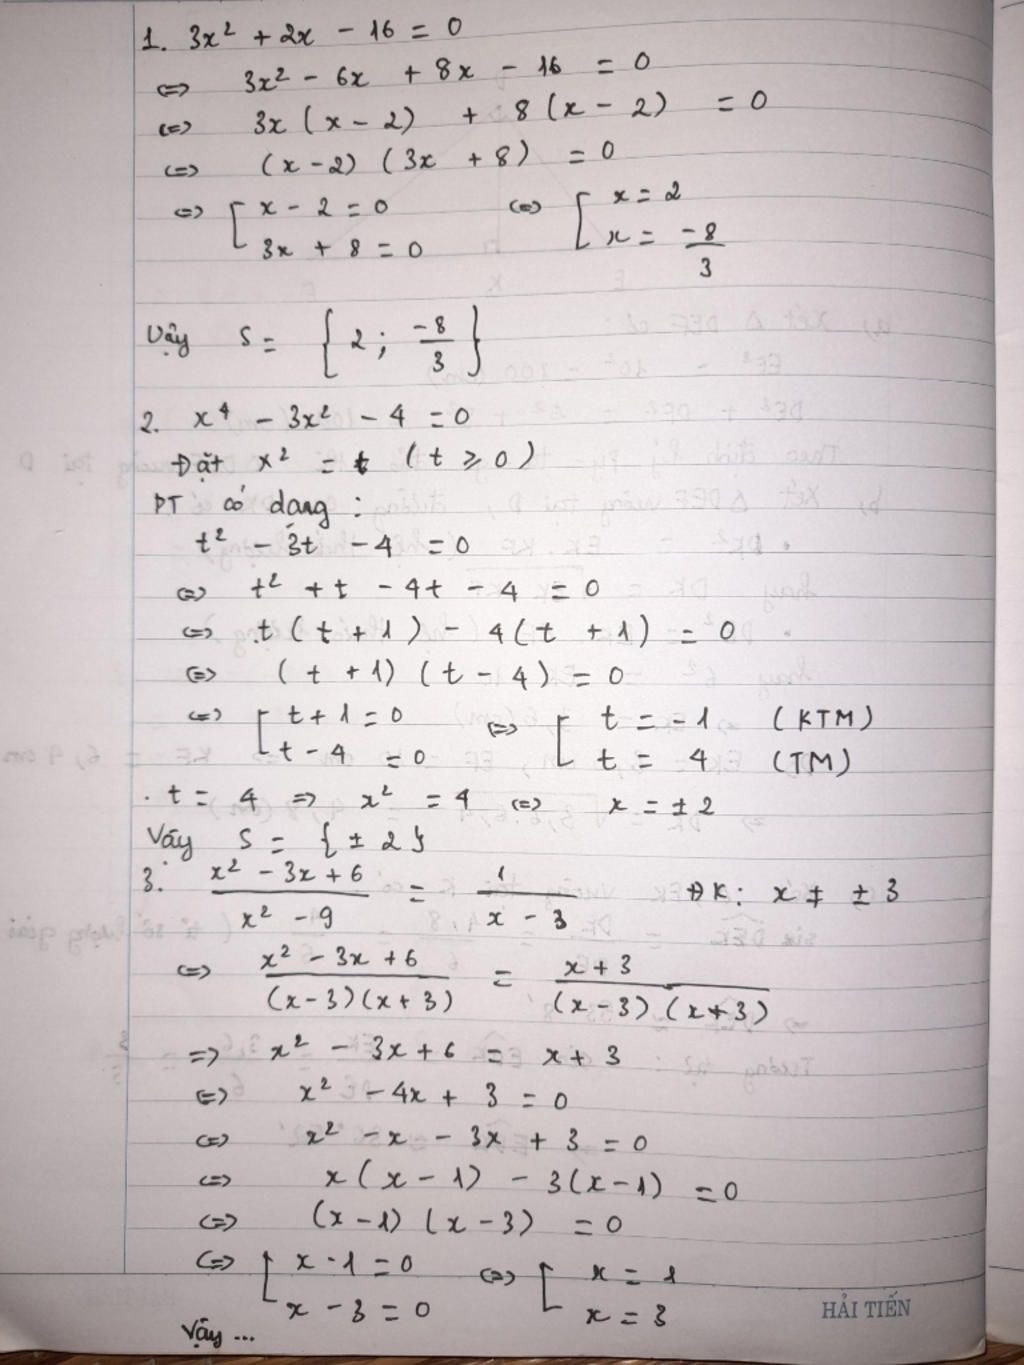 1. 3x² + 2x - 16 = 0
⇔ 3x² - 6x + 8x - 16 = 0
⇔ 3x (x - 2) + 8 (x - 2) = 0
⇔ (x - 2) (3x + 8) = 0
⇔ [ x - 2 = 0 ⇔ [ x = 2
3x + 8 = 0 x = -8/3
Vậy S = { 2 ; -8/3 }
2. x⁴ - 3x² - 4 = 0
Đặt x² = t (t ⩾ 0)
PT có dạng :
t² - 3t - 4 = 0
⇔ t² + t - 4t - 4 = 0
⇔ t (t + 1) - 4 (t + 1) = 0
⇔ (t + 1) (t - 4) = 0
⇔ [ t + 1 = 0 ⇔ [ t = -1 (KTM)
t - 4 = 0 t = 4 (TM)
. t = 4 ⇒ x² = 4 ⇔ x = ± 2
Vậy S = { ± 2 }
3. (x² - 3x + 6)/(x² - 9) = 1/(x - 3) ĐK: x ≠ ± 3
⇔ (x² - 3x + 6)/((x - 3)(x + 3)) = (x + 3)/((x - 3)(x + 3))
⇒ x² - 3x + 6 = x + 3
⇔ x² - 4x + 3 = 0
⇔ x² - x - 3x + 3 = 0
⇔ x (x - 1) - 3 (x - 1) = 0
⇔ (x - 1) (x - 3) = 0
⇔ [ x - 1 = 0 ⇔ [ x = 1
x - 3 = 0 x = 3
Vậy ...
HẢI TIẾN